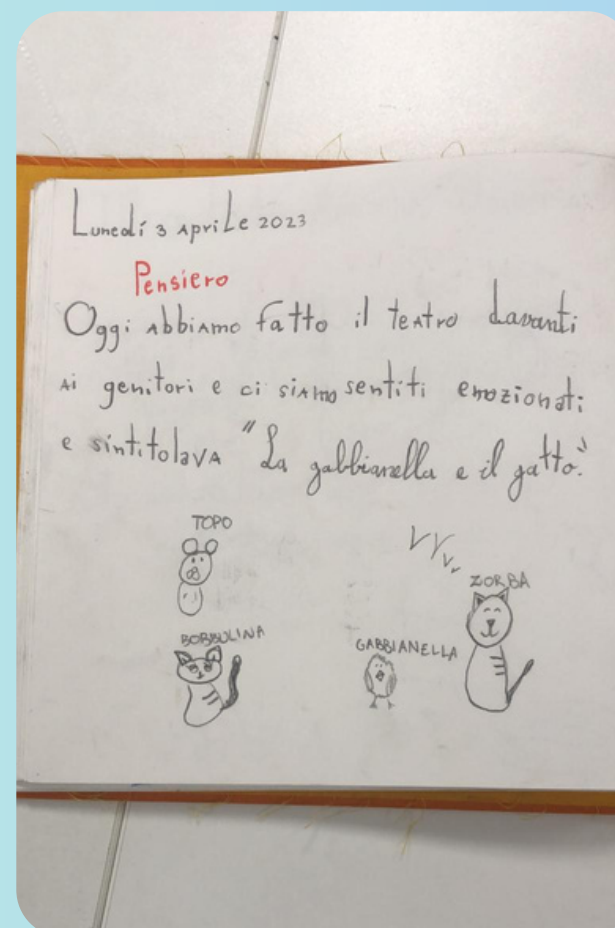 Lunedí 3 Aprile 2023
Pensiero
Oggi abbiamo fatto il teatro davanti
ai genitori e ci siamo sentiti emozionati
e sintitolava "La gabbianella e il gatto".
TOPO
ZORBA
BOBBULINA
GABBIANELLA